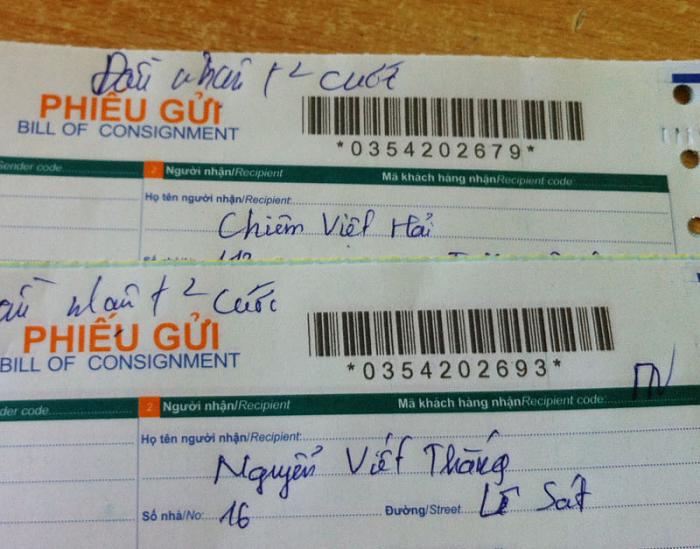 Đầu nhận t 2 cước
PHIẾU GỬI
BILL OF CONSIGNMENT
*0354202679*
Sender code
2 Người nhận/Recipient Mã khách hàng nhận/Recipient code:
Họ tên người nhận/Recipient:
Chiêm Viết Hải
nhận t 2 cước
PHIẾU GỬI
BILL OF CONSIGNMENT
*0354202693*
der code
2 Người nhận/Recipient Mã khách hàng nhận/Recipient code:
Họ tên người nhận/Recipient:
Nguyễn Viết Thắng
Số nhà/No: 16 Đường/Street Lê Sát